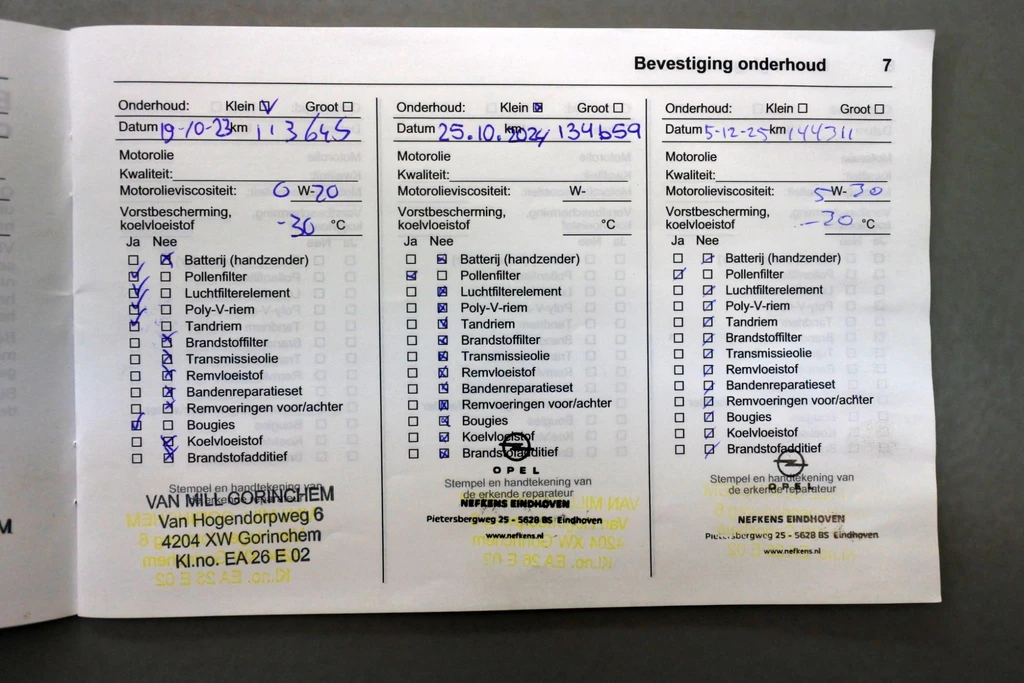 Bevestiging onderhoud 7
Onderhoud: Klein Groot
Datum 19-10-23 km 113645
Motorolie
Kwaliteit:
Motorolieviscositeit: 0 W-20
Vorstbescherming,
koelvloeistof -30 °C
Ja Nee
Batterij (handzender)
Pollenfilter
Luchtfilterelement
Poly-V-riem
Tandriem
Brandstoffilter
Transmissieolie
Remvloeistof
Bandenreparatieset
Remvoeringen voor/achter
Bougies
Koelvloeistof
Brandstofadditief
Stempel en handtekening van
de erkende reparateur
VAN MILL GORINCHEM
Van Hogendorpweg 6
4204 XW Gorinchem
Kl.no. EA 26 E 02
Onderhoud: Klein Groot
Datum 25.10.2024 km 134659
Motorolie
Kwaliteit:
Motorolieviscositeit: W-
Vorstbescherming,
koelvloeistof °C
Ja Nee
Batterij (handzender)
Pollenfilter
Luchtfilterelement
Poly-V-riem
Tandriem
Brandstoffilter
Transmissieolie
Remvloeistof
Bandenreparatieset
Remvoeringen voor/achter
Bougies
Koelvloeistof
Brandstofadditief
OPEL
Stempel en handtekening van
de erkende reparateur
NEFKENS EINDHOVEN
Pietersbergweg 25 - 5628 BS Eindhoven
www.nefkens.nl
Onderhoud: Klein Groot
Datum 5-12-25 km 144311
Motorolie
Kwaliteit:
Motorolieviscositeit: 5 W-30
Vorstbescherming,
koelvloeistof -30 °C
Ja Nee
Batterij (handzender)
Pollenfilter
Luchtfilterelement
Poly-V-riem
Tandriem
Brandstoffilter
Transmissieolie
Remvloeistof
Bandenreparatieset
Remvoeringen voor/achter
Bougies
Koelvloeistof
Brandstofadditief
Stempel en handtekening van
OPEL
de erkende reparateur
NEFKENS EINDHOVEN
Pietersbergweg 25 - 5628 BS Eindhoven
www.nefkens.nl